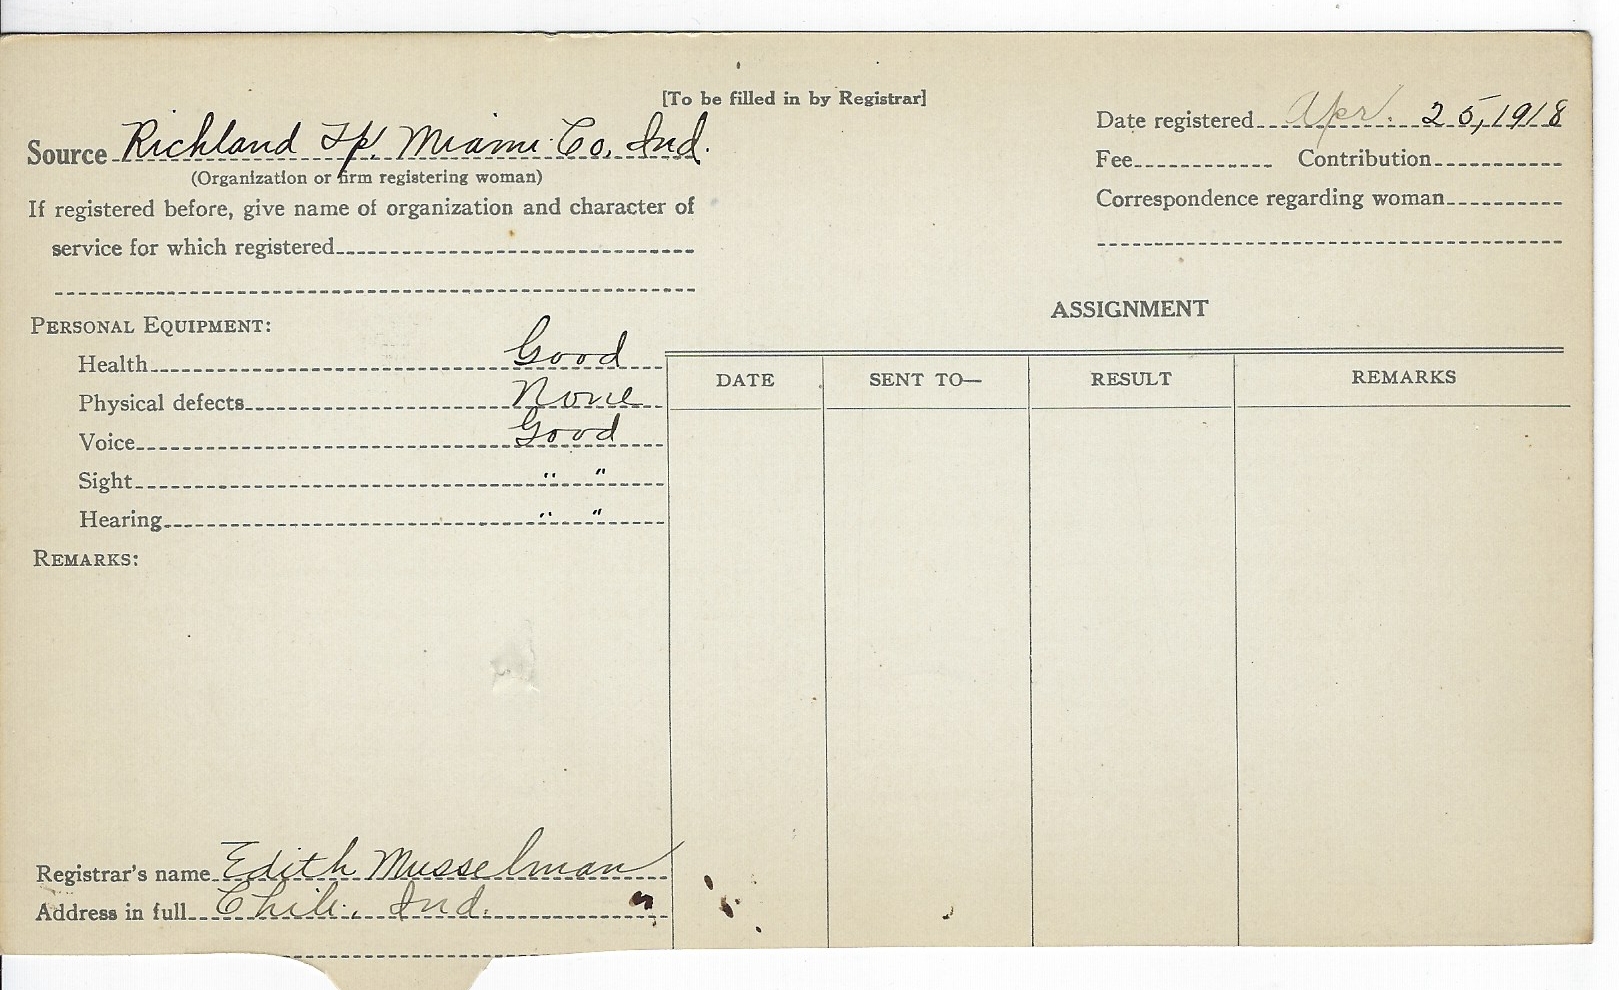 [To be filled in by Registrar]
Date registered Apr. 25, 1918
Source Richland Tp. Miami Co, Ind.
(Organization or firm registering woman)
Fee Contribution
If registered before, give name of organization and character of
service for which registered
Correspondence regarding woman
ASSIGNMENT
PERSONAL EQUIPMENT:
Health Good
Physical defects None
Voice Good
Sight " "
Hearing " "
REMARKS:
DATE SENT TO— RESULT REMARKS
Registrar's name Edith Musselman
Address in full Chili, Ind.